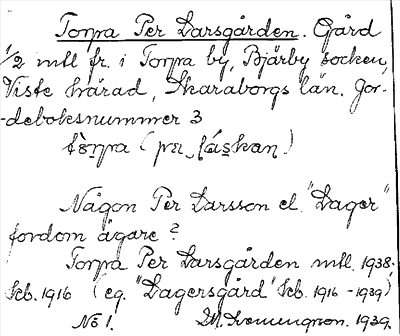 Torpa Per Larsgården. Gård
1/2 mtl fr. i Torpa by, Bjärby socken,
Viste härad, Skaraborgs län. Jor-
-deboksnummer 3
Någon Per Larsson el. "Lager"
fordom ägare?
Torpa Per Larsgården mtl. 1938.
Seb. 1916 (eg. "Lagersgård" Seb. 1916 - 1939)
No 1. 1939.